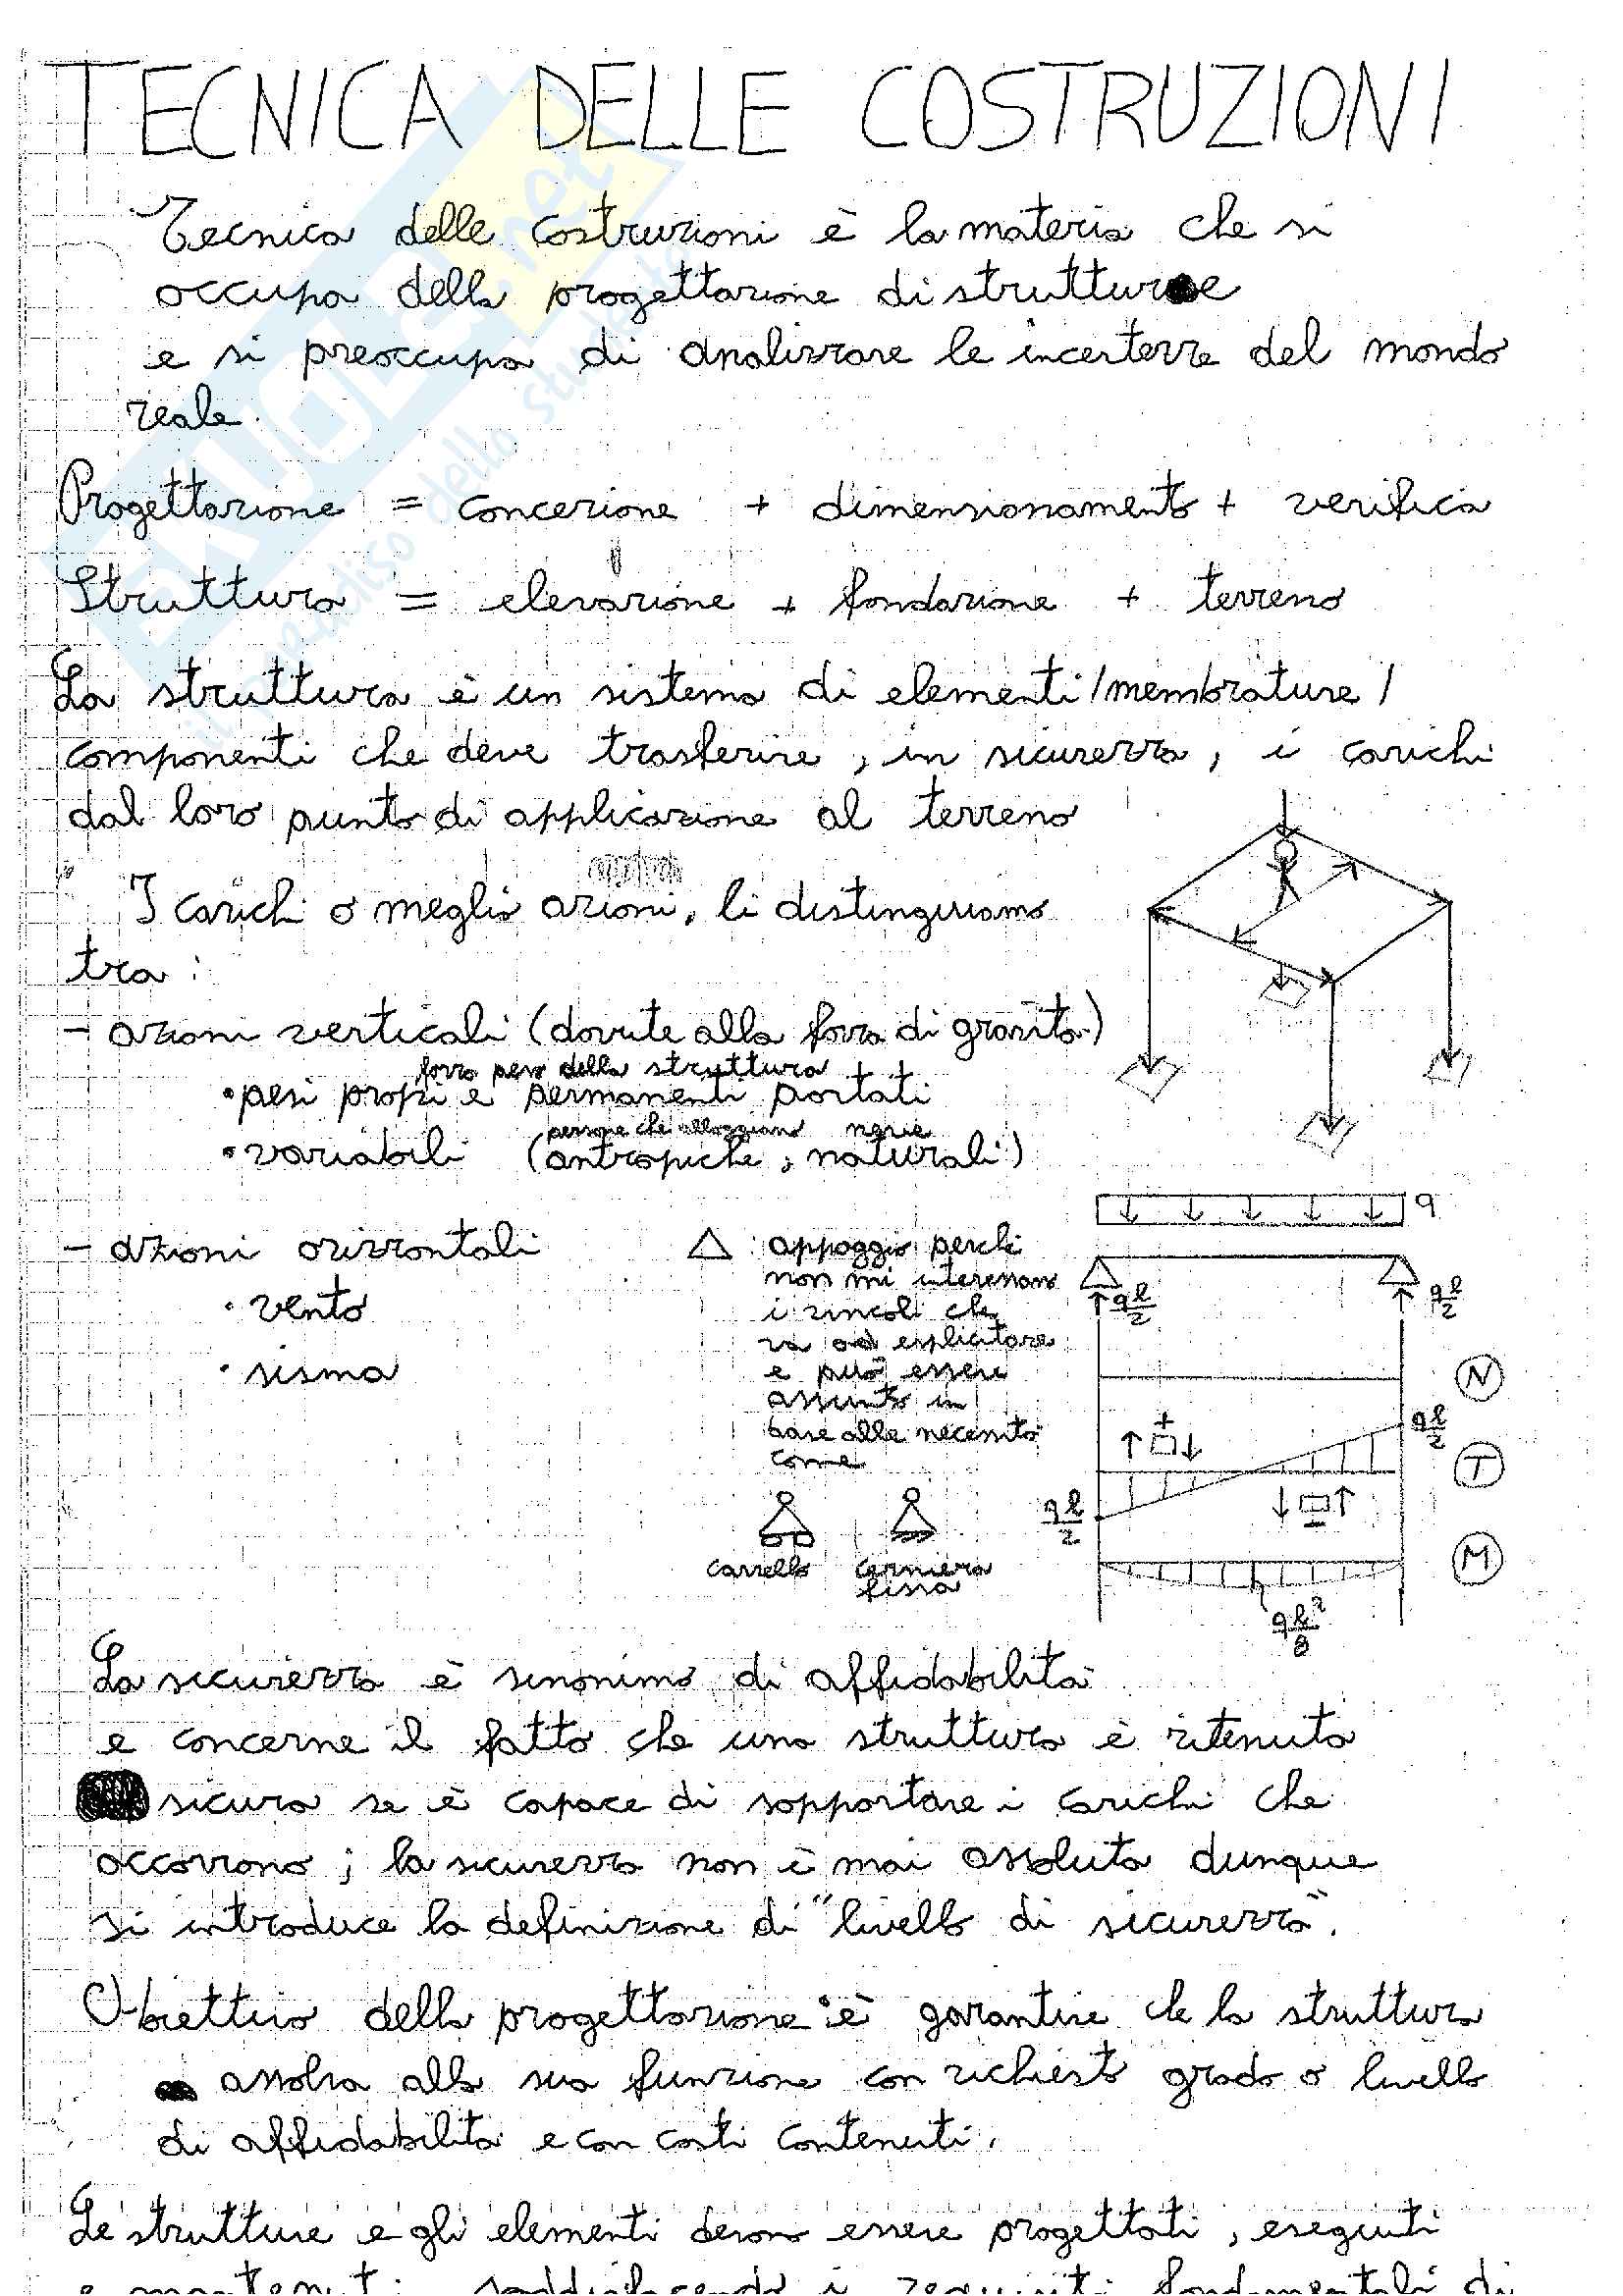 TECNICA DELLE COSTRUZIONI
Tecnica delle costruzioni è la materia che si
occupa della progettazione di strutture
e si preoccupa di analizzare le incertezze del mondo
reale.
Progettazione = concezione + dimensionamento + verifica
Struttura = elevazione + fondazione + terreno
La struttura è un sistema di elementi/membrature/
componenti che deve trasferire, in sicurezza, i carichi
dal loro punto di applicazione al terreno
I carichi o meglio azioni, li distinguiamo
tra:
- azioni verticali (dovute alla forza di gravità)
forza peso della struttura
• pesi propri e permanenti portati
persone che alloggiano neve
• variabili (antropiche, naturali)
q
- azioni orizzontali
• vento
• sisma
△ : appoggio perché
non mi interessano
i vincoli che
va ad esplicitare
e può essere
assunto in
base alle necessità
come
carrello cerniera
fissa
ql/2 ql/2
N
+
ql/2
T
ql/2
-
M
ql²/8
La sicurezza è sinonimo di affidabilità
e concerne il fatto che una struttura è ritenuta
sicura se è capace di sopportare i carichi che
occorrono; la sicurezza non è mai assoluta dunque
si introduce la definizione di "livello di sicurezza".
Obiettivo della progettazione è garantire che la struttura
assolva alla sua funzione con richiesto grado o livello
di affidabilità e con costi contenuti.
Le strutture e gli elementi devono essere progettati, eseguiti
e mantenuti soddisfacendo i requisiti fondamentali di
SKUOLA.net
il paradiso dello studente